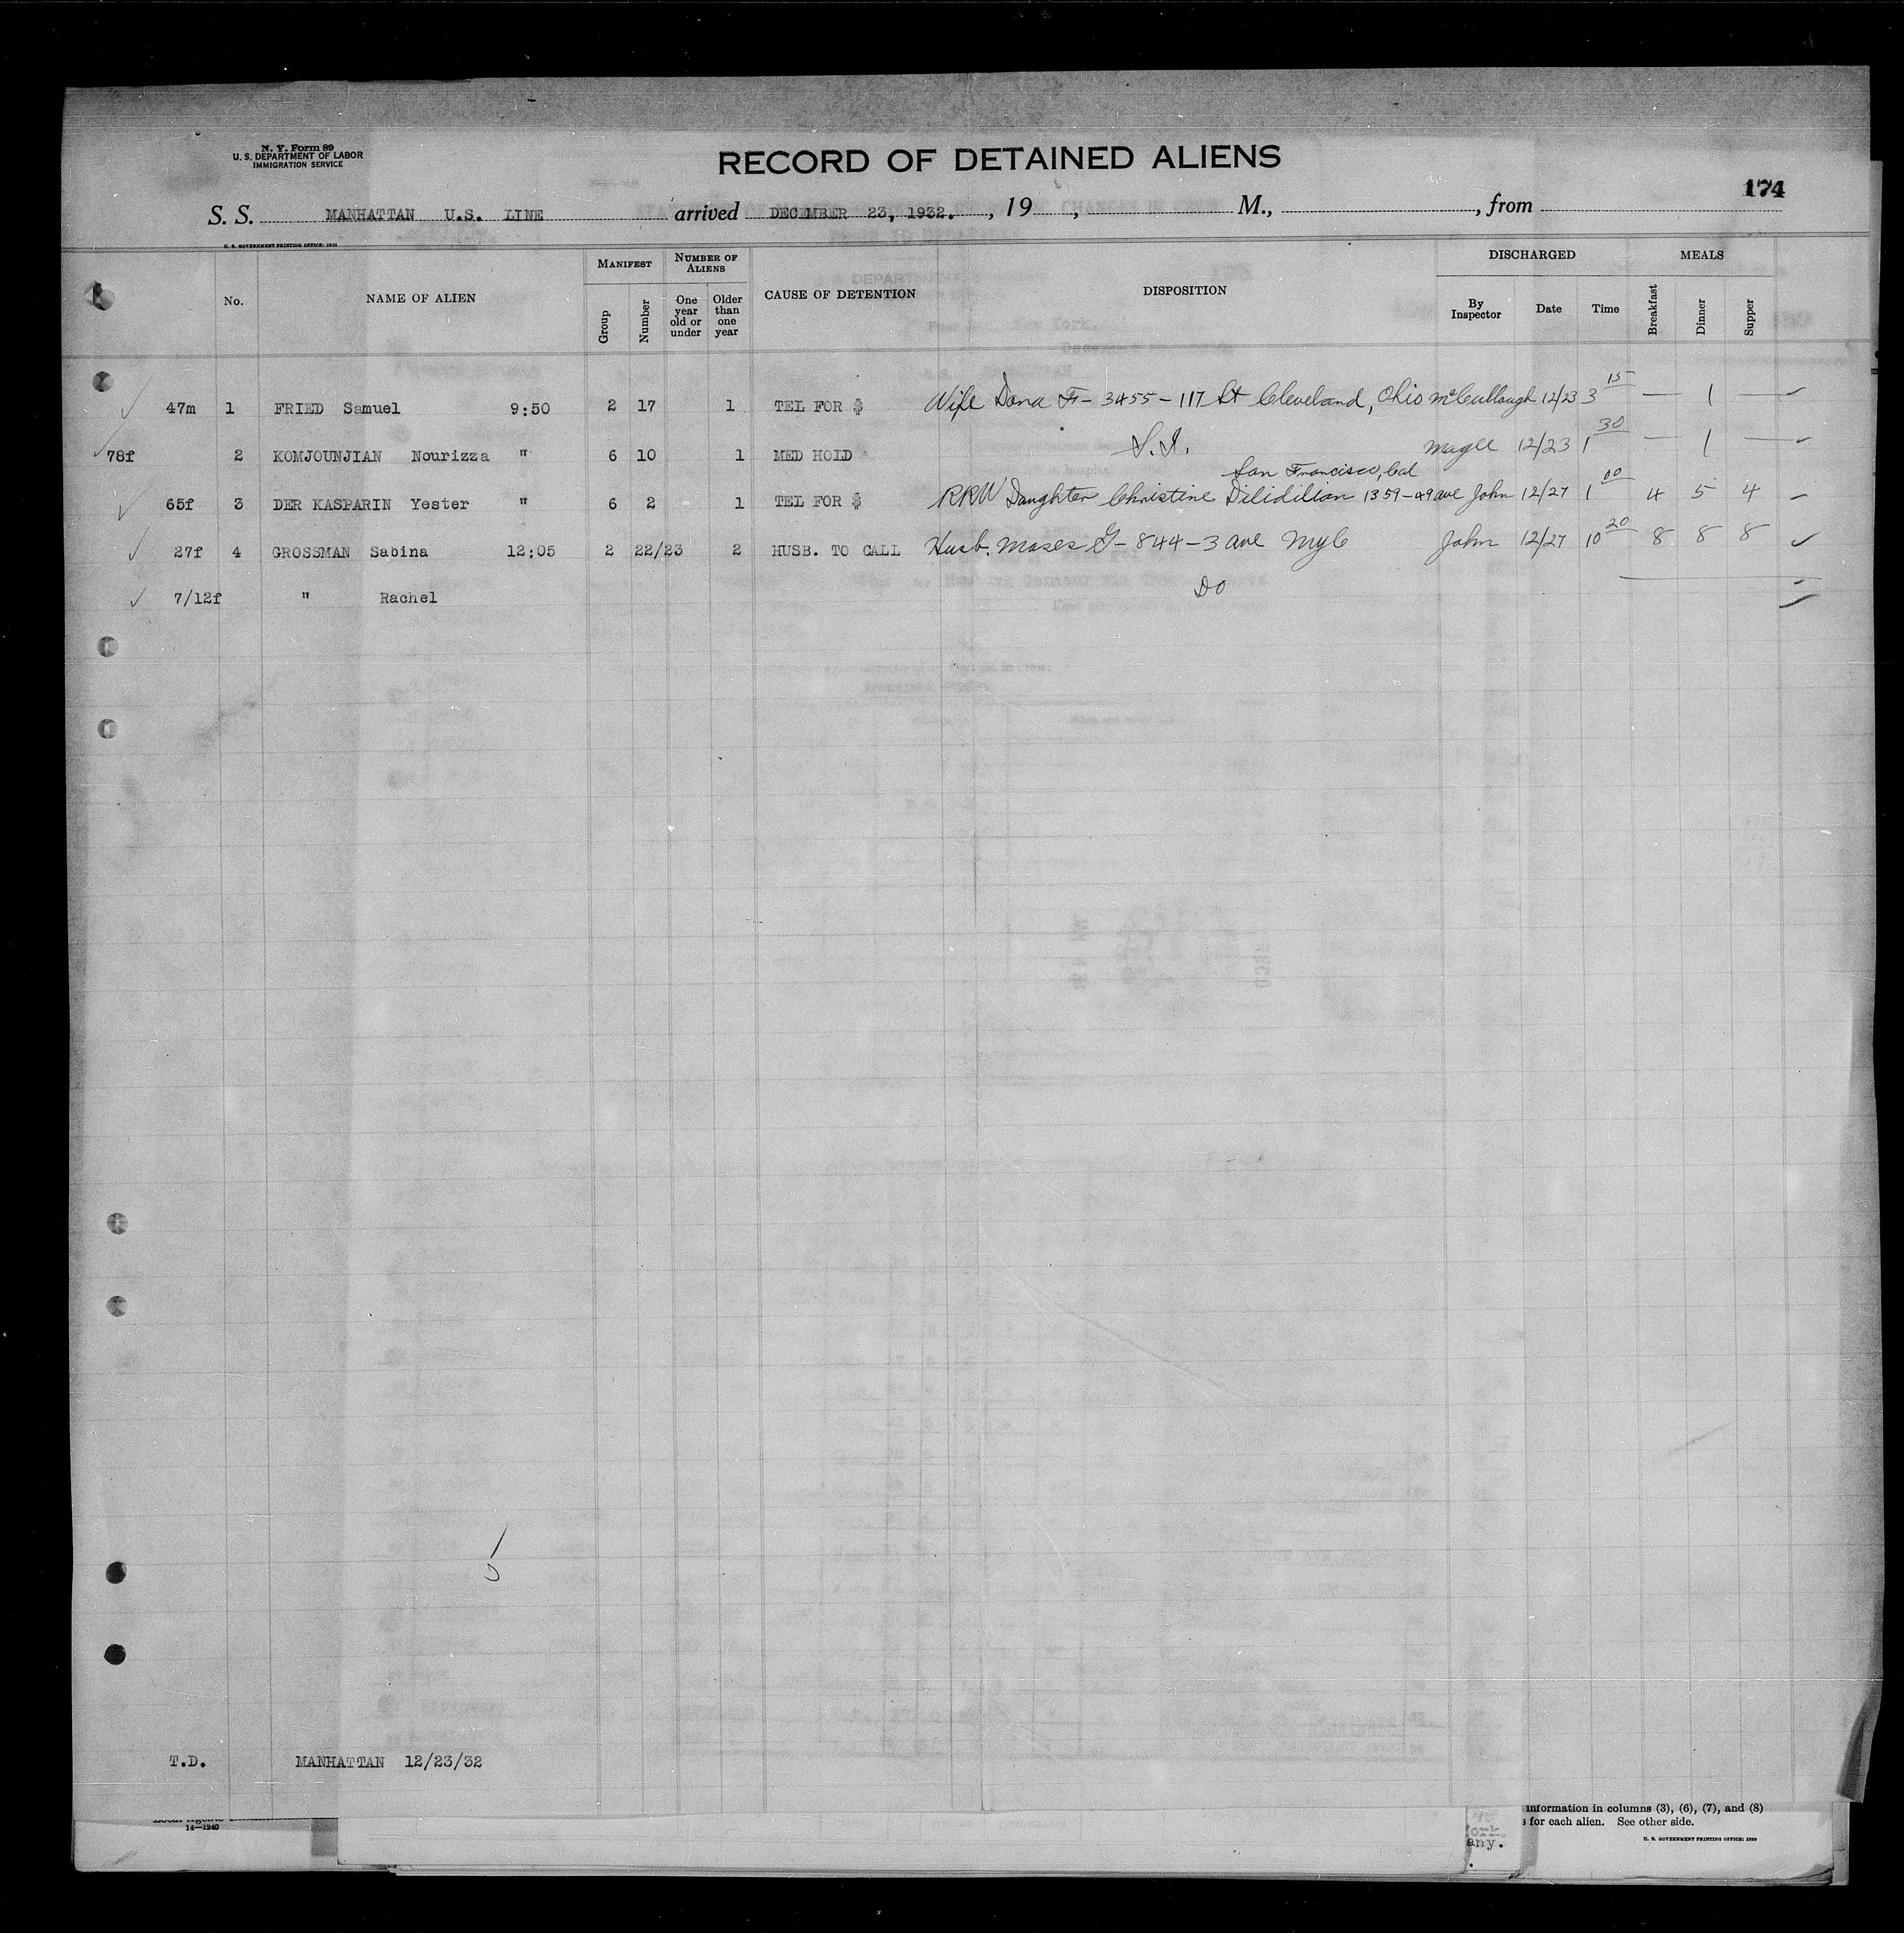 N. Y. Form 89
U. S. DEPARTMENT OF LABOR
IMMIGRATION SERVICE
RECORD OF DETAINED ALIENS
174
S. S. MANHATTAN U.S. LINE arrived DECEMBER 23, 1932. , 19 , M., , from
U. S. GOVERNMENT PRINTING OFFICE: 1931
No. NAME OF ALIEN MANIFEST Group Number NUMBER OF ALIENS One year old or under Older than one year CAUSE OF DETENTION DISPOSITION DISCHARGED By Inspector Date Time MEALS Breakfast Dinner Supper
47m 1 FRIED Samuel 9:50 2 17 1 TEL FOR $ Wife Dora F- 3455-117 St Cleveland, Ohio McCullough 12/23 3 15 — 1 —
78f 2 KOMJOUNJIAN Nourizza " 6 10 1 MED HOLD S.I. Magee 12/23 1 30 — 1 —
San Francisco, Cal
65f 3 DER KASPARIN Yester " 6 2 1 TEL FOR $ RRW Daughter Christine Dilidilian 1359-49 ave John 12/27 1 00 4 5 4
27f 4 GROSSMAN Sabina 12:05 2 22/23 2 HUSB. TO CALL Husb. Moses G- 844-3 ave NYC John 12/27 10 20 8 8 8
7/12f " Rachel Do
5
T.D. MANHATTAN 12/23/32
14—1240
information in columns (3), (6), (7), and (8)
for each alien. See other side.
any.
U. S. GOVERNMENT PRINTING OFFICE: 1929